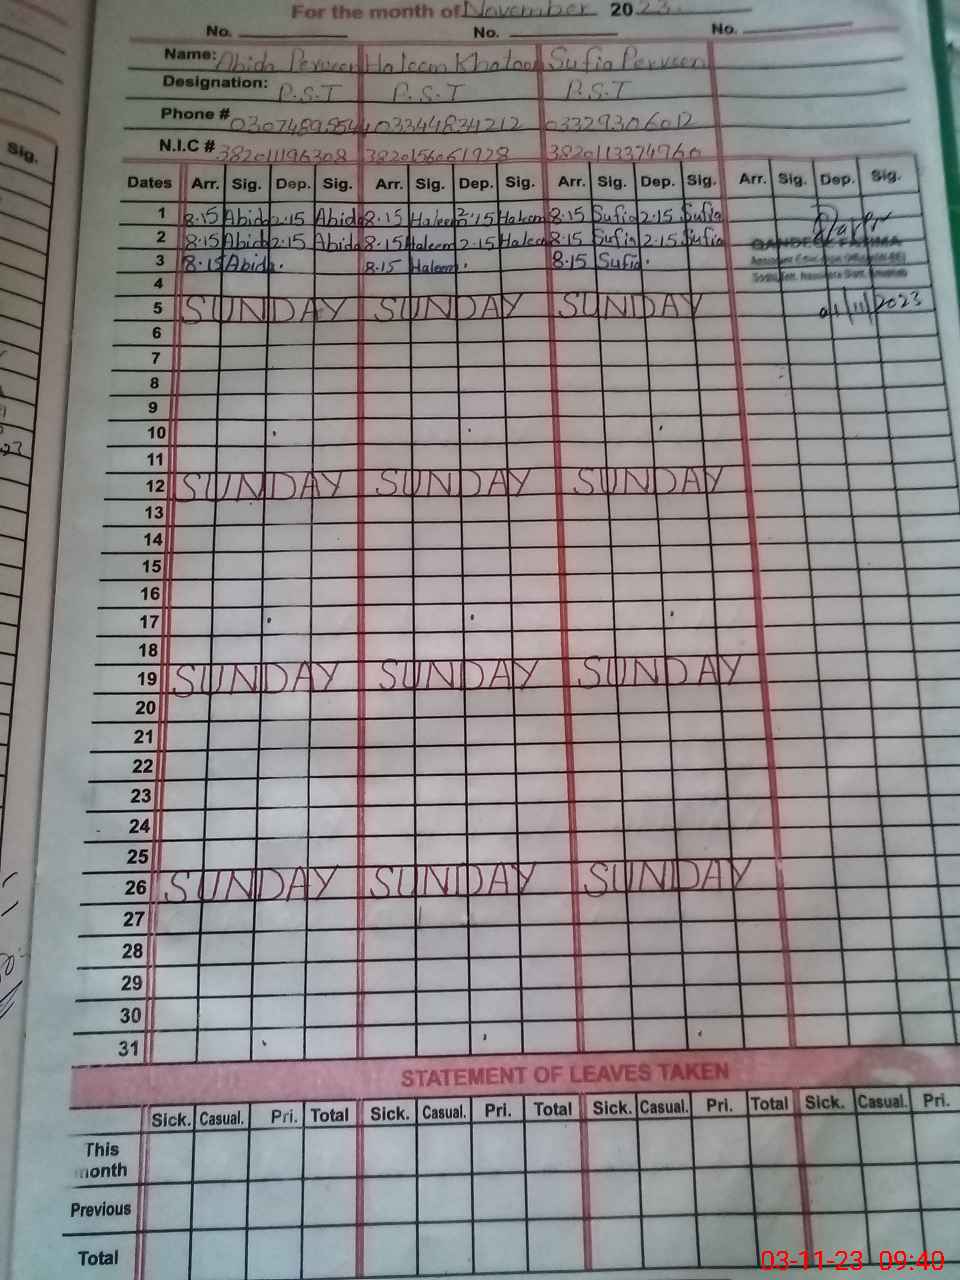 For the month of November 2023
No. No. No.
Name: Abida Perveen Haleem Khatoon Sufia Perveen
Designation: P.S.T P.S.T P.S.T
Phone # 03074895544 03344834212 03329306012
N.I.C # 382011196308 3820156061928 3820113374960
Sig.
Dates Arr. Sig. Dep. Sig. Arr. Sig. Dep. Sig. Arr. Sig. Dep. Sig. Arr. Sig. Dep. Sig.
1 8.15 Abida 2.15 Abida 8.15 Haleem 2.15 Haleem 8.15 Sufia 2.15 Sufia
2 8.15 Abida 2.15 Abida 8.15 Haleem 2.15 Haleem 8.15 Sufia 2.15 Sufia
3 8.15 Abida 8.15 Haleem 8.15 Sufia
4
5 SUNDAY SUNDAY SUNDAY 01/11/2023
6
7
8
9
10
11
12 SUNDAY SUNDAY SUNDAY
13
14
15
16
17
18
19 SUNDAY SUNDAY SUNDAY
20
21
22
23
24
25
26 SUNDAY SUNDAY SUNDAY
27
28
29
30
31
STATEMENT OF LEAVES TAKEN
Sick. Casual. Pri. Total Sick. Casual. Pri. Total Sick. Casual. Pri. Total Sick. Casual. Pri.
This
month
Previous
Total
03-11-23 09:40